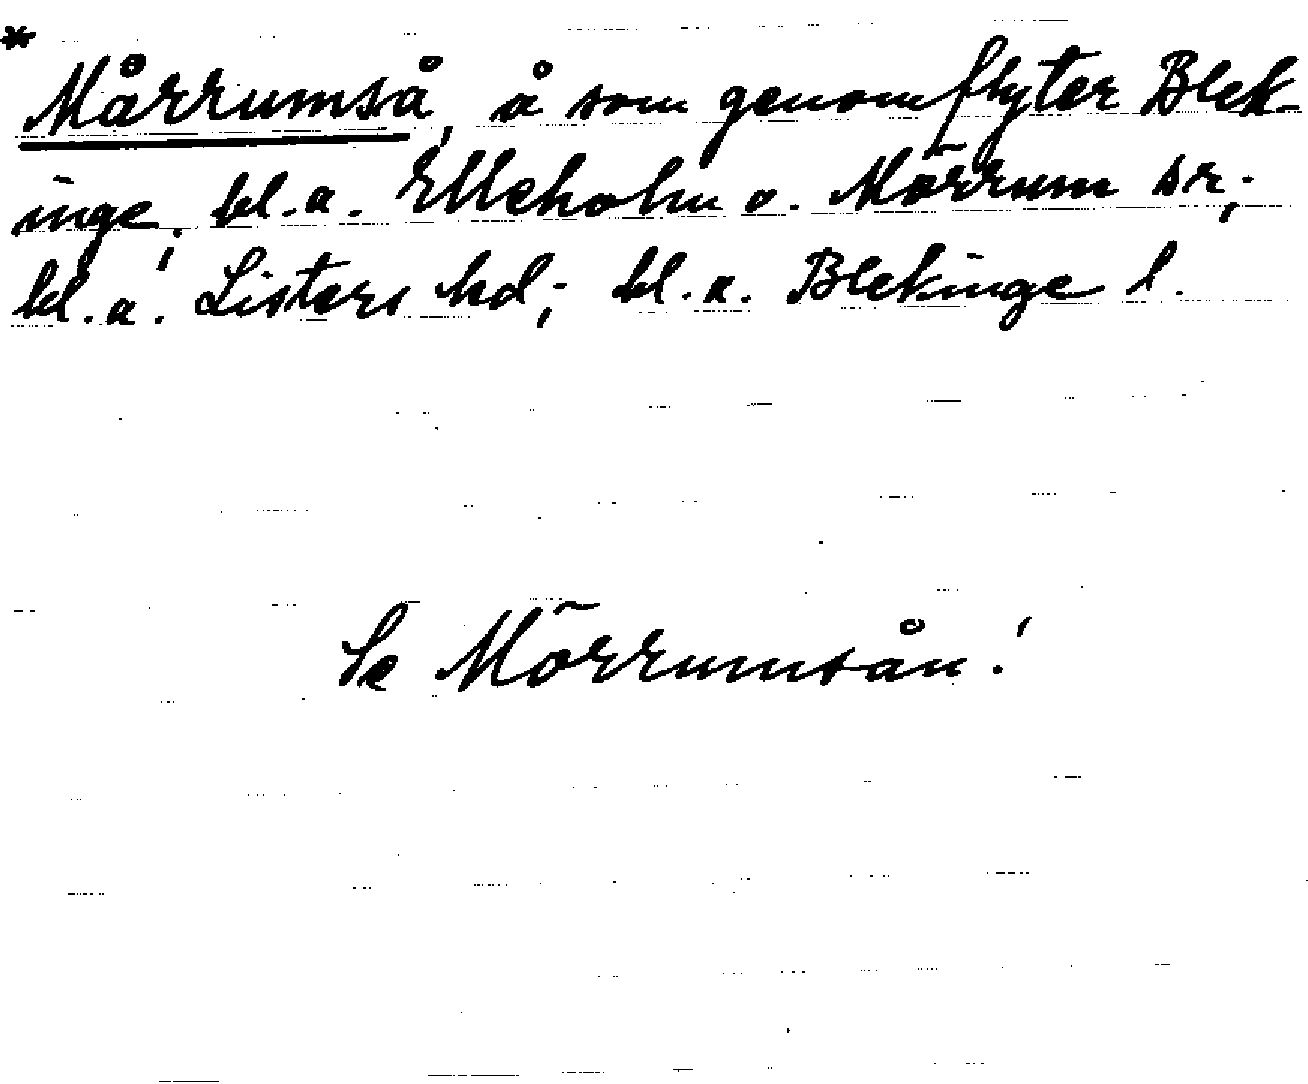 * Mårrumså, å som genomflyter Blek-
inge; bl.a. Elleholm o. Mörrum sr;
bl.a. Listers hd; bl.a. Blekinge l.
Se Mörrumsån!